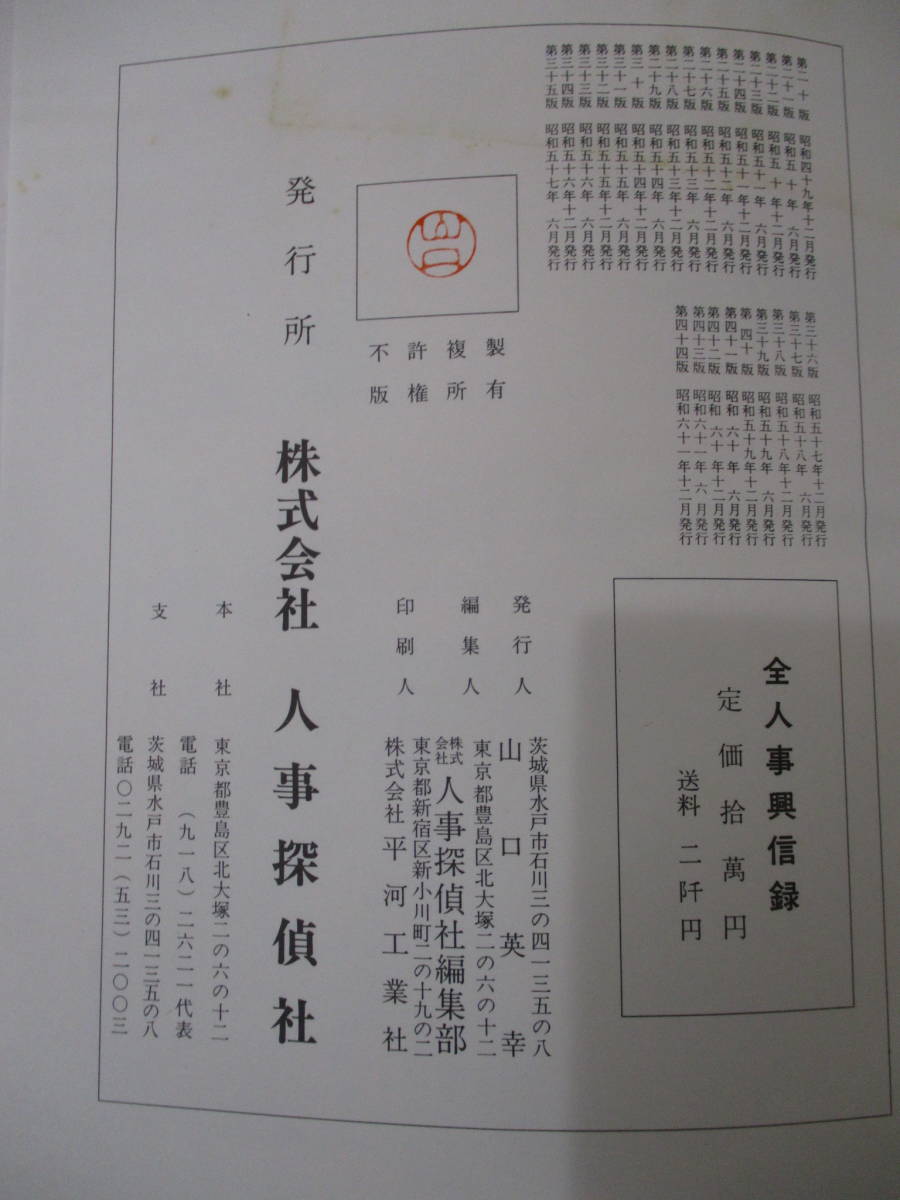 第二十版 昭和四十九年十二月発行
第二十一版 昭和五十年 六月発行
第二十二版 昭和五十年十二月発行
第二十三版 昭和五十一年 六月発行
第二十四版 昭和五十一年十二月発行
第二十五版 昭和五十二年 六月発行
第二十六版 昭和五十二年十二月発行
第二十七版 昭和五十三年 六月発行
第二十八版 昭和五十三年十二月発行
第二十九版 昭和五十四年 六月発行
第三十版 昭和五十四年十二月発行
第三十一版 昭和五十五年 六月発行
第三十二版 昭和五十五年十二月発行
第三十三版 昭和五十六年 六月発行
第三十四版 昭和五十六年十二月発行
第三十五版 昭和五十七年 六月発行
第三十六版 昭和五十七年十二月発行
第三十七版 昭和五十八年 六月発行
第三十八版 昭和五十八年十二月発行
第三十九版 昭和五十九年 六月発行
第四十版 昭和五十九年十二月発行
第四十一版 昭和六十年 六月発行
第四十二版 昭和六十年十二月発行
第四十三版 昭和六十一年 六月発行
第四十四版 昭和六十一年十二月発行
全人事興信録
定価拾萬円
送料二阡円
山口
製有
複所
許権
不版
茨城県水戸市石川三の四一三五の八
発行人 山口英幸
東京都豊島区北大塚二の六の十二
編集人 株式会社人事探偵社編集部
東京都新宿区新小川町二の十九の二
印刷人 株式会社平河工業社
発行所 株式会社 人事探偵社
本社 東京都豊島区北大塚二の六の十二
電話 (九一八)二六二一代表
支社 茨城県水戸市石川三の四一三五の八
電話〇二九二(五三)二〇〇三